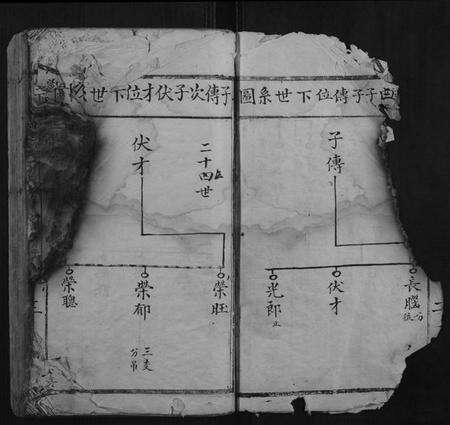 子子傳位下世系圖
子傳
長
伏才
光郎
止
子傳次子伏才位下世系
二十四世
伏才
榮旺
榮郁
三支
分吊
榮聰